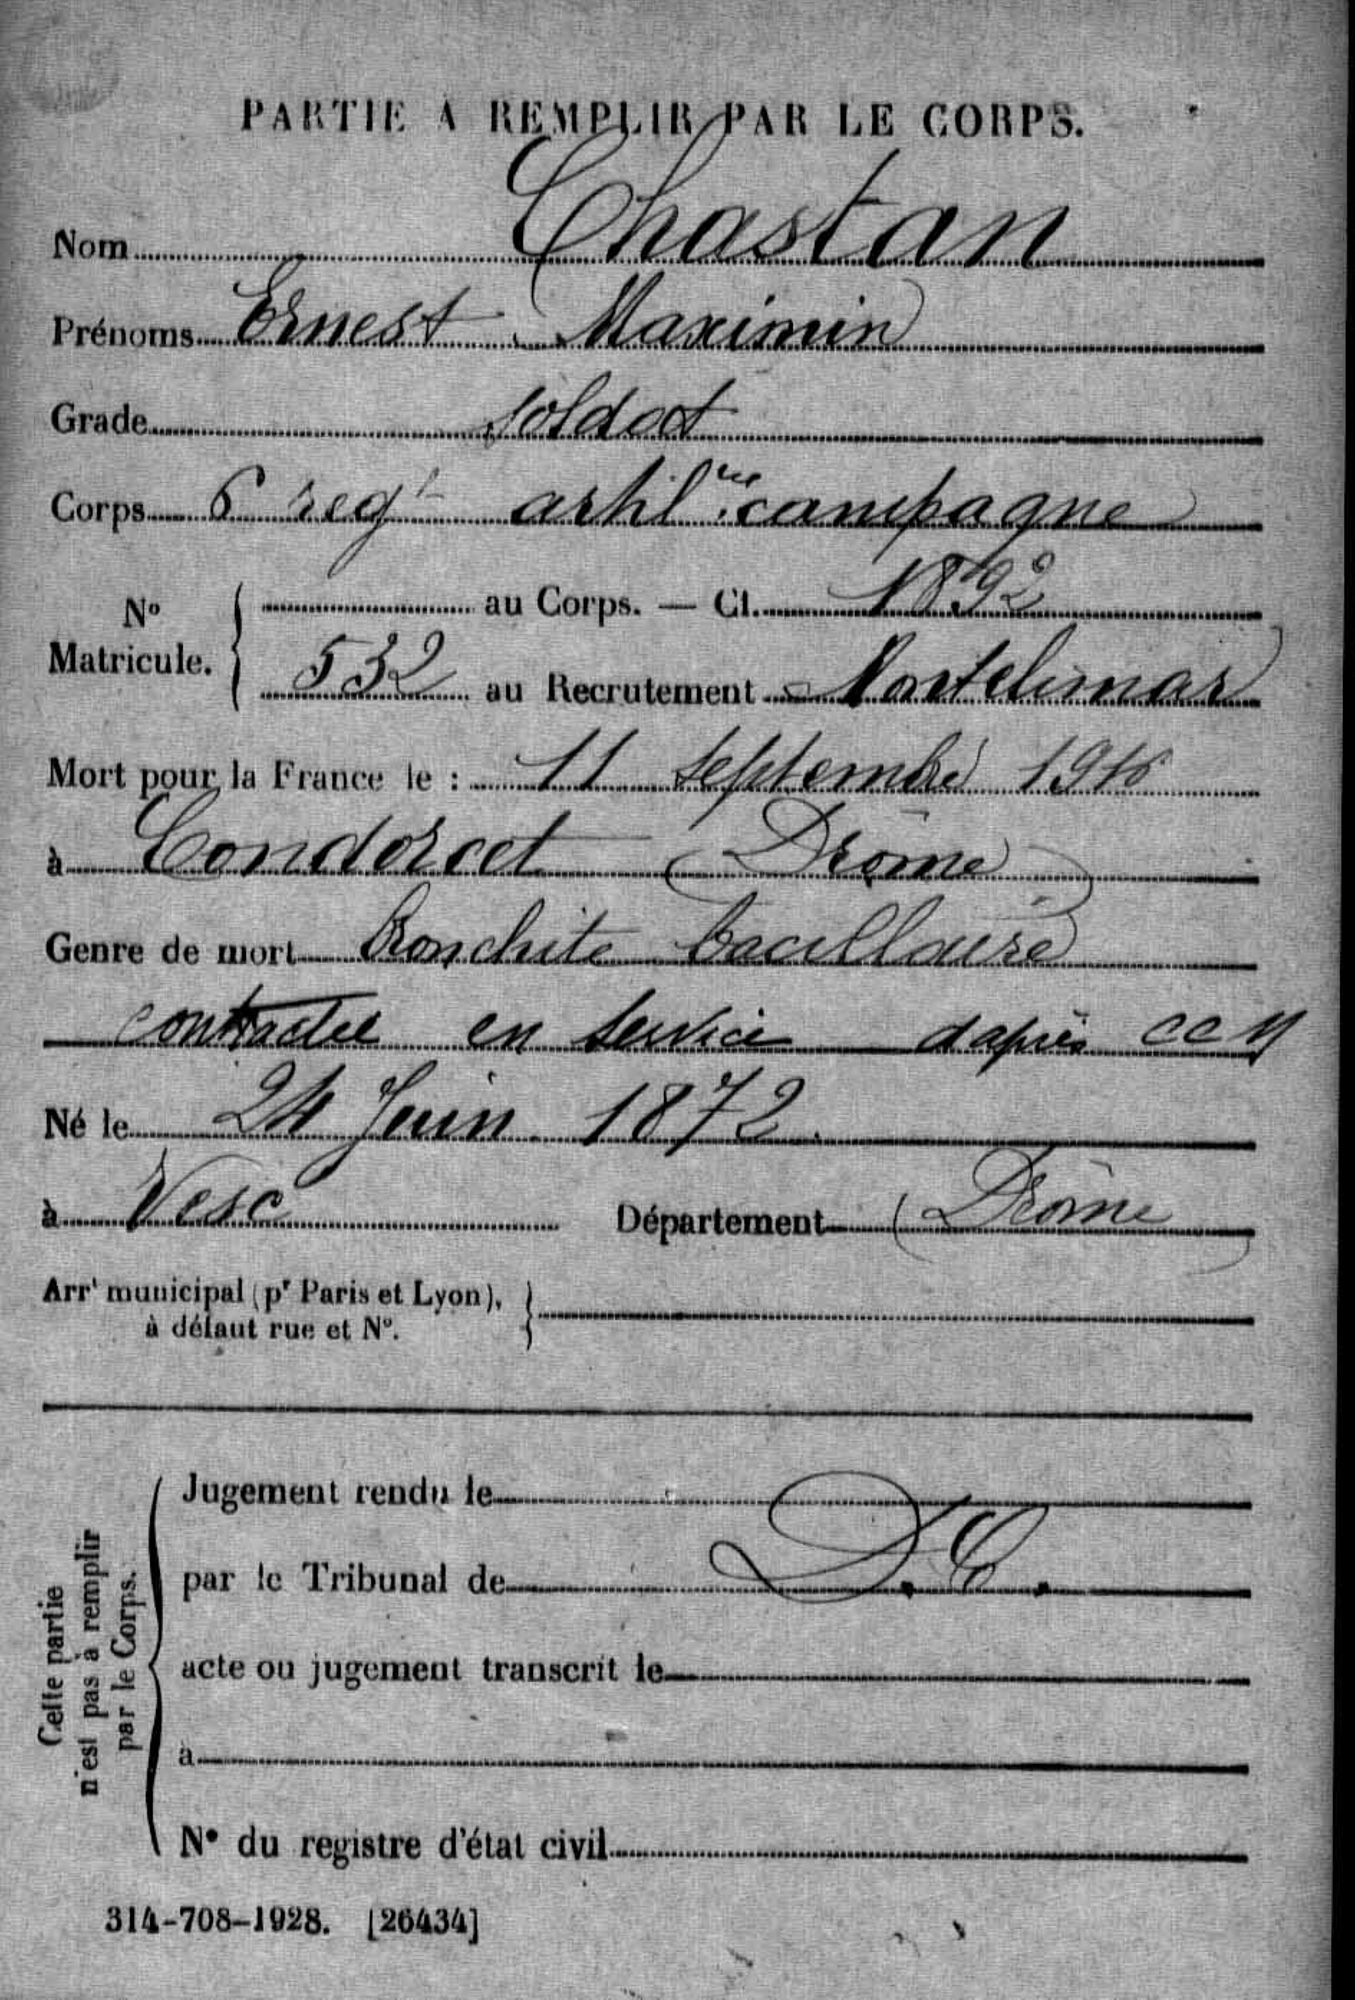 PARTIE A REMPLIR PAR LE CORPS.
Nom Chastan
Prénoms Ernest Maximin
Grade soldat
Corps 6 regt artilrie campagne
No Matricule. { au Corps. — Cl. 1892
532 au Recrutement Montelimar
Mort pour la France le : 11 septembre 1916
à Condorcet (Drôme)
Genre de mort Bronchite bacillaire
contractée en service d'après CCM
Né le 24 Juin 1872.
à Vesc Département (Drôme)
Arrt municipal (pr Paris et Lyon), }
à défaut rue et No.
Cette partie
n'est pas à remplir
par le Corps.
Jugement rendu le
par le Tribunal de D.C.
acte ou jugement transcrit le
à
No du registre d'état civil
314-708-1928. [26434]